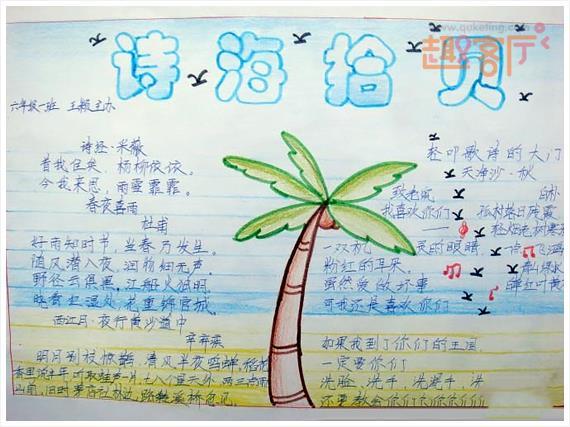 www.quketing.com
趣客厅
诗海拾贝
六年级一班 王颖主办
诗经·采薇
昔我往矣，杨柳依依。
今我来思，雨雪霏霏。
春夜喜雨
杜甫
好雨知时节，当春乃发生。
随风潜入夜，润物细无声。
野径云俱黑，江船火独明。
晓看红湿处，花重锦官城。
西江月·夜行黄沙道中
辛弃疾
明月别枝惊鹊，清风半夜鸣蝉，稻花
香里说丰年，听取蛙声一片，七八个星天外，两三点雨
山前，旧时茅店社林边，路转溪桥忽见。
轻叩歌诗的大门
天净沙·秋
致老鼠
我喜欢你们
孤村落日残霞
轻烟老树寒
一双机灵的眼睛
一点飞鸿
粉红的耳朵，
青山绿水
虽然爱做坏事
可我还是喜欢你们
如果我到了你们的王国
一定要你们
洗脸、洗手、洗泥手、洗